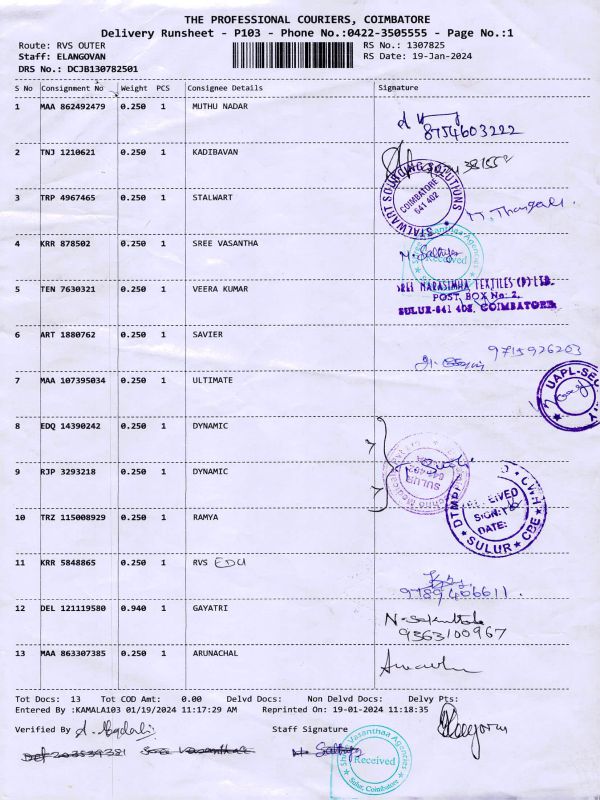 THE PROFESSIONAL COURIERS, COIMBATORE
Delivery Runsheet - P103 - Phone No.:0422-3505555 - Page No.:1
Route: RVS OUTER RS No.: 1307825
Staff: ELANGOVAN RS Date: 19-Jan-2024
DRS No.: DCJB130782501
S No Consignment No Weight PCS Consignee Details Signature
1 MAA 862492479 0.250 1 MUTHU NADAR
8754603222
2 TNJ 1210621 0.250 1 KADIBAVAN
3 TRP 4967465 0.250 1 STALWART
STALWART SOURCING SOLUTIONS
COIMBATORE
641 402
M. Thangali.
4 KRR 878502 0.250 1 SREE VASANTHA
Shree Vasanthaa Agencies
Received
5 TEN 7630321 0.250 1 VEERA KUMAR
SREE NARASIMHA TEXTILES (P) LTD.
POST BOX No: 2,
SULUR-641 402, COIMBATORE
6 ART 1880762 0.250 1 SAVIER
9715926203
7 MAA 107395034 0.250 1 ULTIMATE
UAPL-SECURITY
8 EDQ 14390242 0.250 1 DYNAMIC
9 RJP 3293218 0.250 1 DYNAMIC
SULUR
RECEIVED
SIGN:
DATE:
SULUR CBE
10 TRZ 115008929 0.250 1 RAMYA
11 KRR 5848865 0.250 1 RVS EDU
9789406611.
12 DEL 121119580 0.940 1 GAYATRI
9363100967
13 MAA 863307385 0.250 1 ARUNACHAL
Tot Docs: 13 Tot COD Amt: 0.00 Delvd Docs: Non Delvd Docs: Delvy Pts:
Entered By :KAMALA103 01/19/2024 11:17:29 AM Reprinted On: 19-01-2024 11:18:35
Verified By Staff Signature
Shree Vasanthaa Agencies
Received
Sulur, Coimbatore